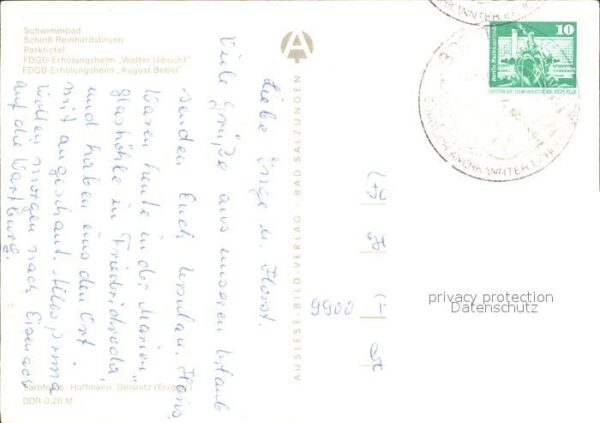 Schwimmbad
Schloß Reinhardsbrunn
Parkhotel
FDGB-Erholungsheim „Walter Ulbricht“
FDGB-Erholungsheim „August Bebel“
Liebe Inge u. Horst.
Viele Grüße aus unserem Urlaub
senden Euch Ursula u. Hans.
Waren heute in der „Marien
glashöhle in Friedrichroda,
und haben uns den Ort
mit angeschaut. Alles prima
Wollen morgen nach Eisenach
auf die Wartburg.
Farbfotos: Hoffmann, Oelsnitz (Erzgeb.)
DDR 0,20 M
AUSLESE-BILD-VERLAG · BAD SALZUNGEN
A
10
DEUTSCHE DEMOKRATISCHE REPUBLIK
STAATLICH ANERKANNTER
9900
privacy protection
Datenschutz